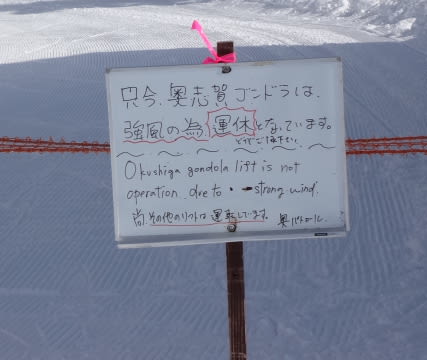 只今、奥志賀ゴンドラは、
強風の為、運休となっています。
Okushiga gondola lift is not
operation due to strong wind.
尚、その他のリフトは運転しています。 奥パトロール